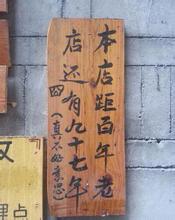 本店距百年老
店还有九十七年
四(真不好意思)